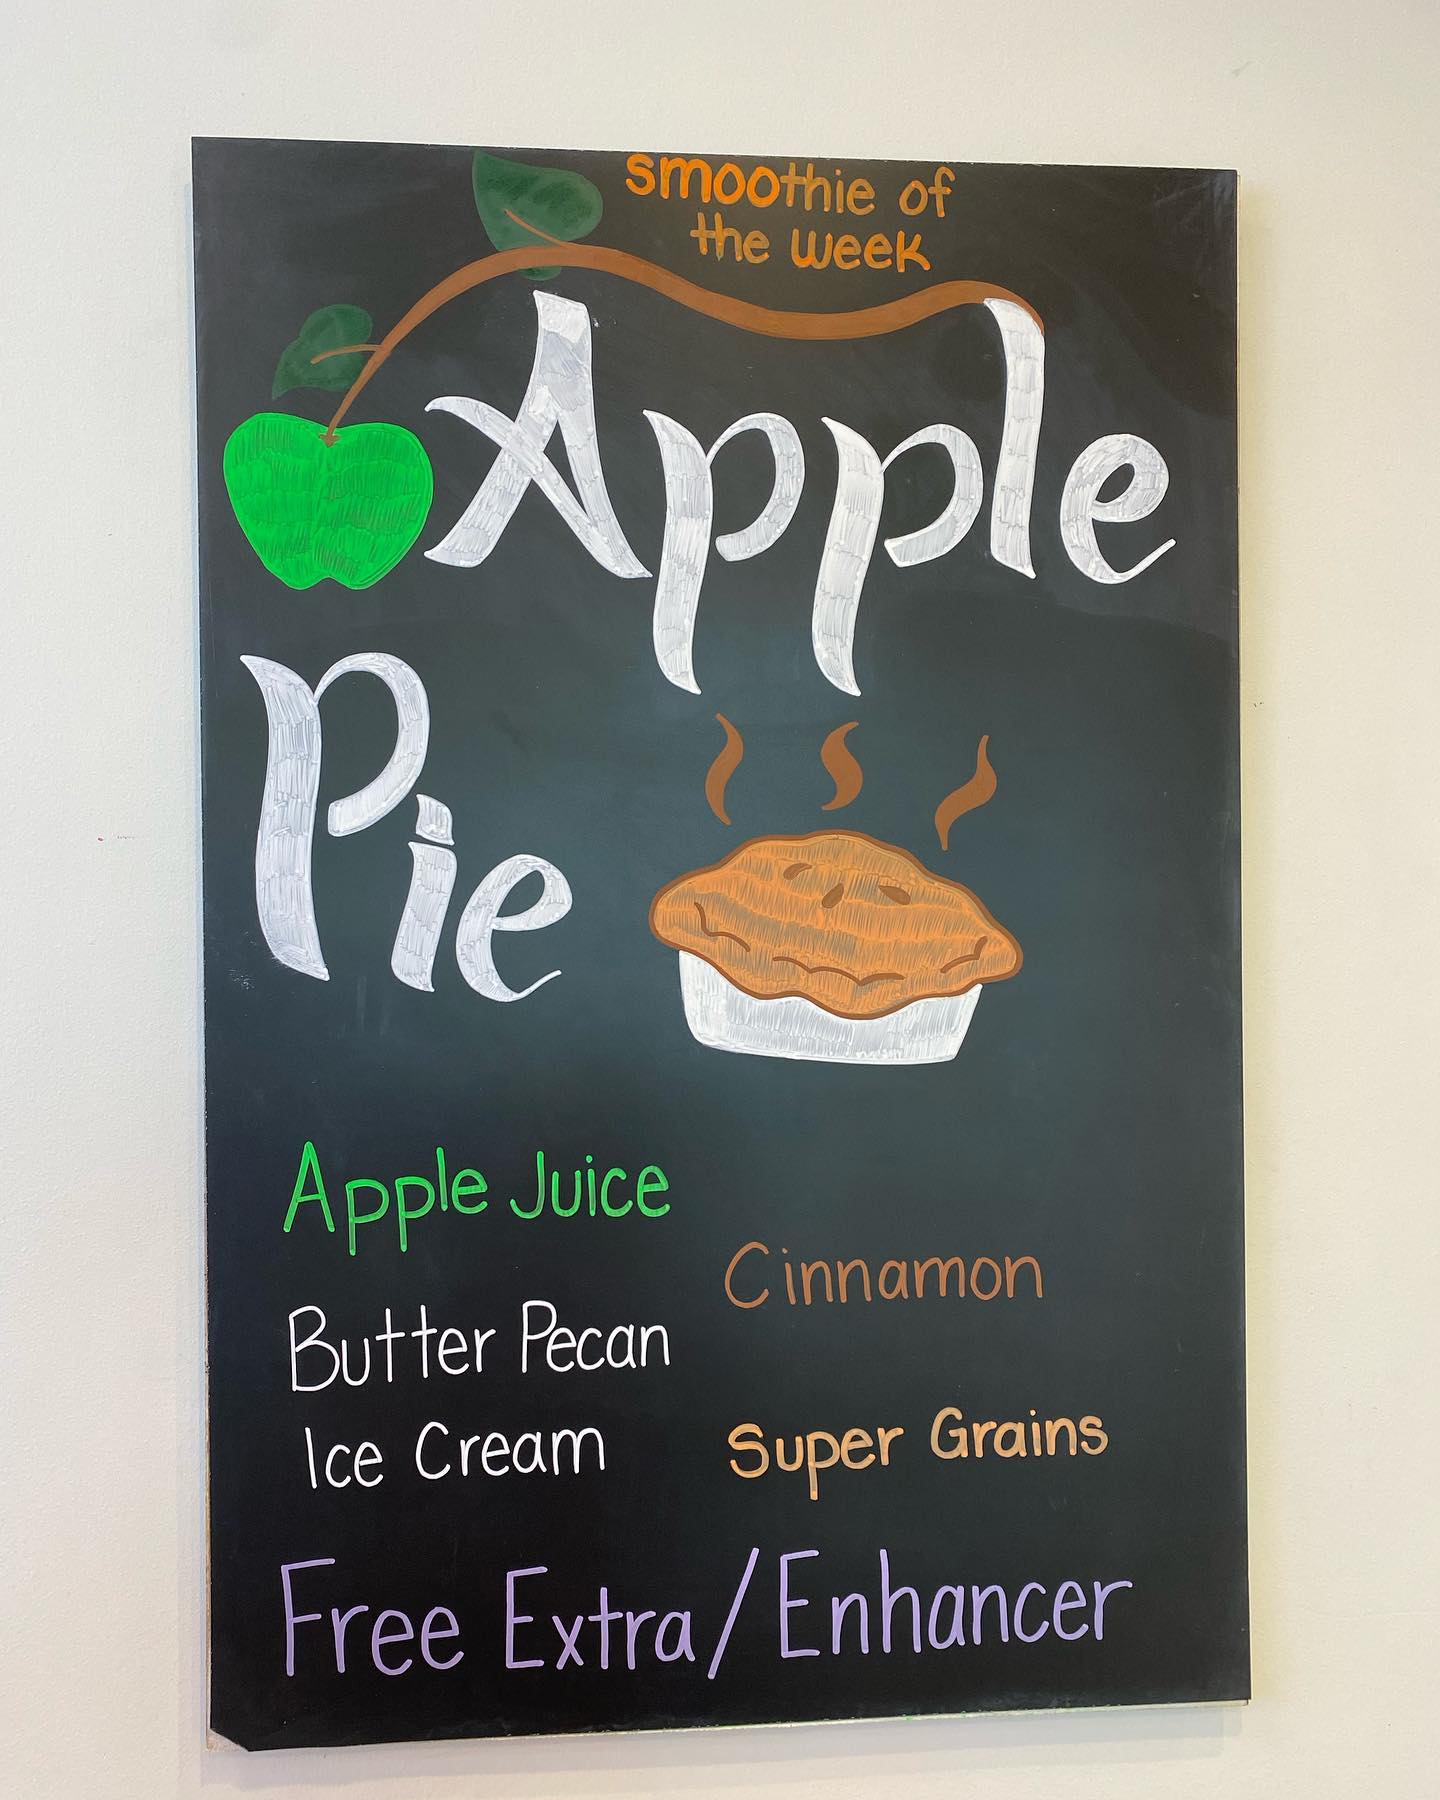 smoothie of
the week
Apple
Pie
Apple Juice
Butter Pecan
Ice Cream
Cinnamon
Super Grains
Free Extra/Enhancer